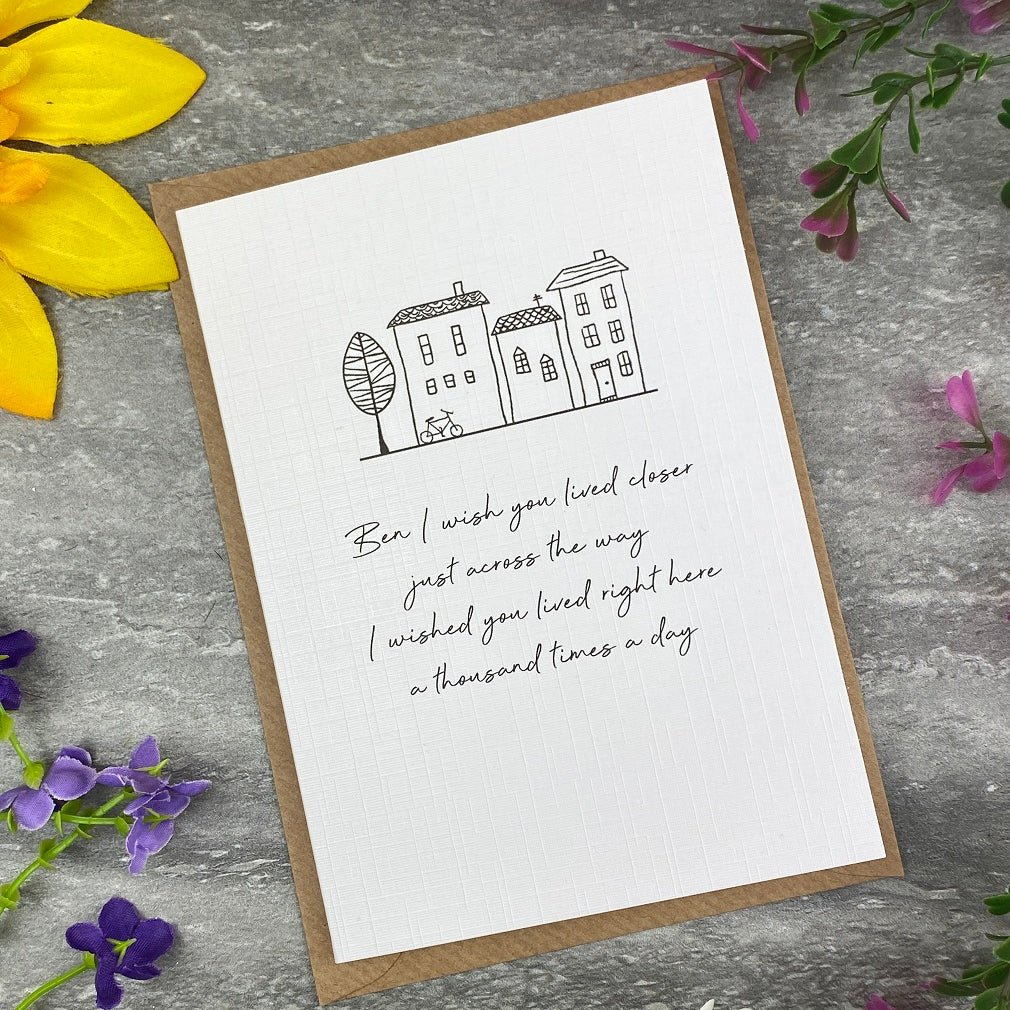 Ben I wish you lived closer
just across the way
I wished you lived right here
a thousand times a day